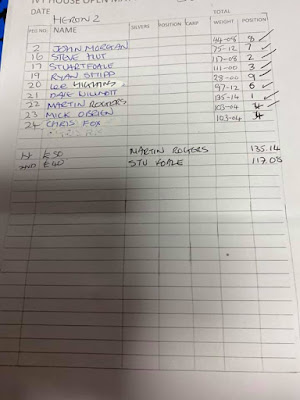 IVY HOUSE OPEN
DATE HERON 2 TOTAL
PEG NO. NAME SILVERS POSITION CARP WEIGHT POSITION
2 JOHN MORGAN 44-08 8
16 STEVE 75-12 7
17 STUART FOALE 117-08 2
19 RYAN SHIPP 111-00 3
20 LEE 28-00 9
21 DAVE 97-12 6
22 MARTIN ROGERS 135-14 1
23 MICK O'BRIEN 103-04 4
24 CHRIS FOX 103-04 4
1ST £50 MARTIN ROGERS 135.14
2ND £40 STU FOALE 117.08